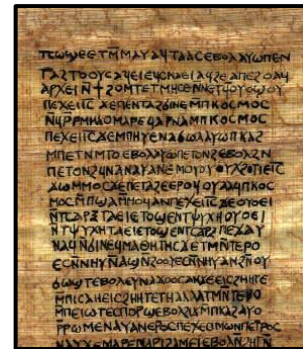 ⲧⲥⲱϣⲉ ⲉⲧⲙⲙⲁⲩ ⲁϥⲧⲁⲁⲥ ⲉⲃⲟⲗ ⲁⲩⲱ ⲡⲉⲛ
ⲧⲁϩⲧⲟⲟⲩⲥ ⲁϥⲉⲓ ⲉϥⲥⲕⲁⲉⲓ ⲁϥϩⲉ ⲁⲡⲉϩⲟ ⲁϥ
ⲁⲣⲭⲉⲓ ⲛ̄ϯ ϩⲟⲙⲧ ⲉⲧⲙⲏⲥⲉ ⲛⲛⲉⲧϥⲟⲩⲟϣⲟⲩ
ⲡⲉϫⲉ ⲓ̄ⲥ̄ ϫⲉ ⲡⲉⲛⲧⲁϩϭⲓⲛⲉ ⲙⲡⲕⲟⲥⲙⲟⲥ
ⲛϥⲣ̄ ⲣⲙⲙⲁⲟ ⲙⲁⲣⲉϥⲁⲣⲛⲁ ⲙⲡⲕⲟⲥⲙⲟⲥ
ⲡⲉϫⲉ ⲓ̄ⲥ̄ ϫⲉ ⲙⲡⲏⲩⲉ ⲛⲁϭⲱⲗ ⲁⲩⲱ ⲡⲕⲁϩ
ⲙⲡⲉⲧⲛⲙⲧⲟ ⲉⲃⲟⲗ ⲁⲩⲱ ⲡⲉⲧⲟⲛϩ ⲉⲃⲟⲗ ϩⲛ
ⲡⲉⲧⲟⲛϩ ϥⲛⲁⲛⲁⲩ ⲁⲛ ⲉⲙⲟⲩ ⲟⲩⲭ ϩⲟⲧⲓ ⲉⲓ̄ⲥ̄
ϫⲱ ⲙⲙⲟⲥ ϫⲉ ⲡⲉⲧⲁϩⲉ ⲉⲣⲟϥ ⲟⲩⲁⲁϥ ⲡⲕⲟⲥ
ⲙⲟⲥ ⲙ̄ⲡϣⲁ ⲙⲙⲟϥ ⲁⲛ ⲡⲉϫⲉ ⲓ̄ⲥ̄ ϫⲉ ⲟⲩⲟⲉⲓ
ⲛ̄ⲧⲥⲁⲣⲝ ⲧⲁⲉⲓ ⲉⲧⲟϣⲉ ⲛⲧⲯⲩⲭⲏ ⲟⲩⲟⲉⲓ
ⲛⲧⲯⲩⲭⲏ ⲧⲁⲉⲓ ⲉⲧⲟϣⲉ ⲛⲧⲥⲁⲣⲝ ⲡⲉϫⲁⲩ
ⲛⲁϥ ⲛϭⲓ ⲛⲉϥⲙⲁⲑⲏⲧⲏⲥ ϫⲉ ⲧⲙⲛⲧⲉⲣⲟ
ⲉⲥⲛ̄ⲛⲏⲩ ⲛⲁϣ ⲛϩⲟⲟⲩ ⲉⲥⲛⲛⲏⲩ ⲁⲛ ϩⲛ ⲟⲩ
ϭⲱϣⲧ ⲉⲃⲟⲗ ⲉⲩⲛⲁϫⲟⲟⲥ ⲁⲛ ϫⲉ ⲉⲓⲥϩⲏⲏⲧⲉ
ⲙⲡⲓⲥⲁ ⲏ ⲉⲓⲥϩⲏⲏⲧⲉ ⲧⲏ ⲁⲗⲗⲁ ⲧⲙⲛⲧⲉⲣⲟ
ⲙⲡⲉⲓⲱⲧ ⲉⲥⲡⲟⲣϣ ⲉⲃⲟⲗ ϩⲓϫⲙ ⲡⲕⲁϩ ⲁⲩⲱ
ⲣ̄ⲣⲱⲙⲉ ⲛⲁⲩ ⲁⲛ ⲉⲣⲟⲥ ⲡⲉϫⲉ ⲥⲓⲙⲱⲛ ⲡⲉⲧⲣⲟⲥ
ⲛⲁⲩ ϫⲉ ⲙⲁⲣⲉ ⲙⲁⲣⲓϩⲁⲙ ⲉⲓ ⲉⲃⲟⲗ ⲛϩⲏⲧⲛ